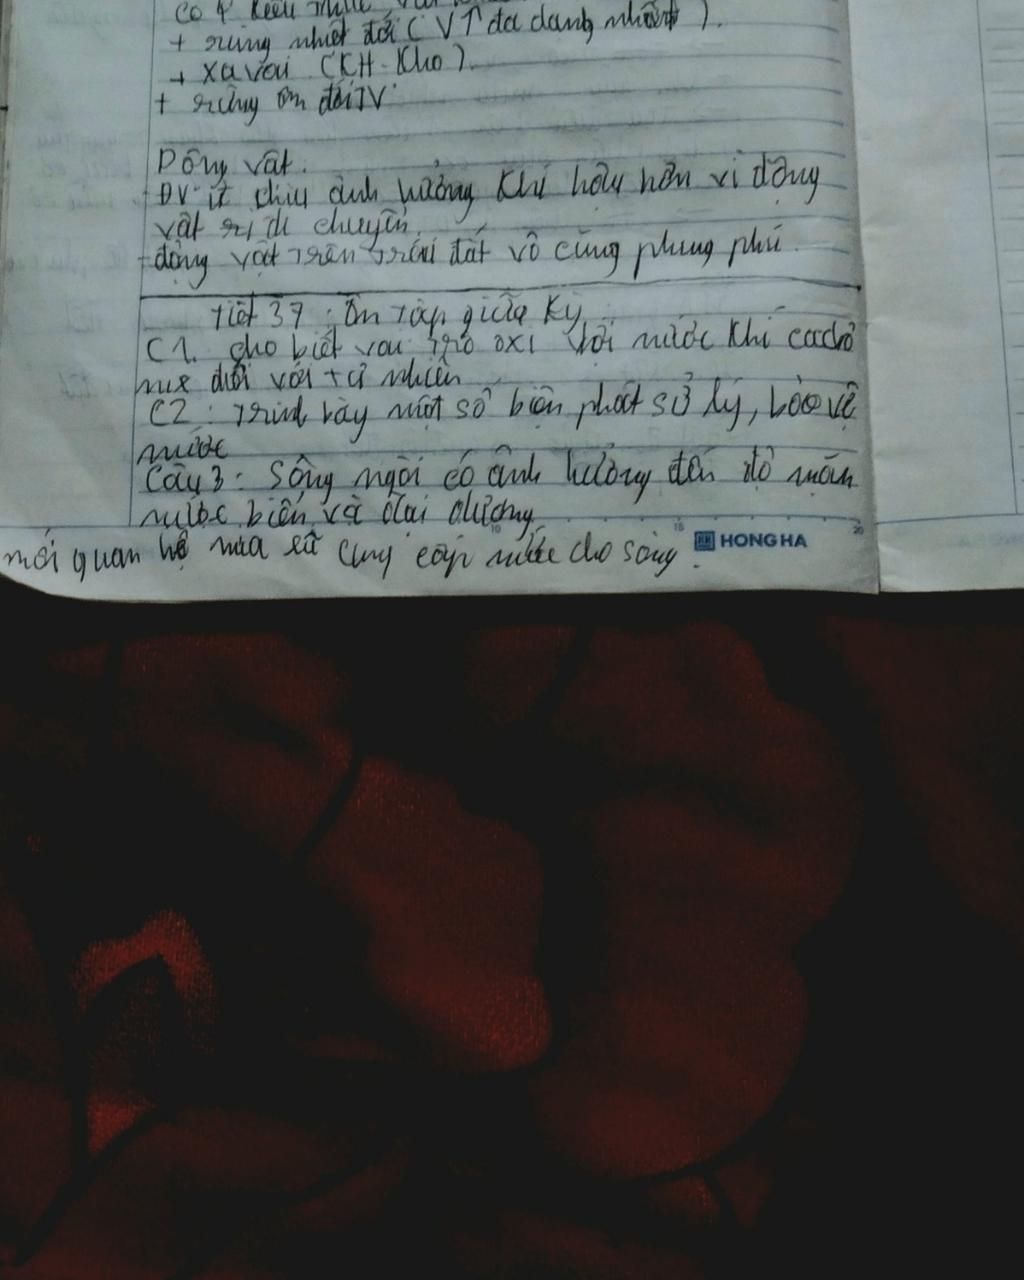 có 4 kiểu
+ rừng nhiệt đới ( VT đa dạng nhất ).
+ xa van (KH-Khô).
+ rừng ôn đới TV
Động vật.
+ ĐV ít chịu ảnh hưởng khí hậu hơn vì động
vật di chuyển.
+ động vật trên trái đất vô cùng phong phú.
Tiết 37 : Ôn tập giữa kỳ
C1. cho biết vai trò oxi hơi nước khí cacbo
nic đối với tự nhiên
C2 : Trình bày một số biện phát sử lý, bảo vệ
nước
Câu 3 : Sông ngòi có ảnh hưởng đến độ mặn
nước biển và đại dương
mối quan hệ mùa lũ cung cấp nước cho sông.
10 15 20
HONG HA